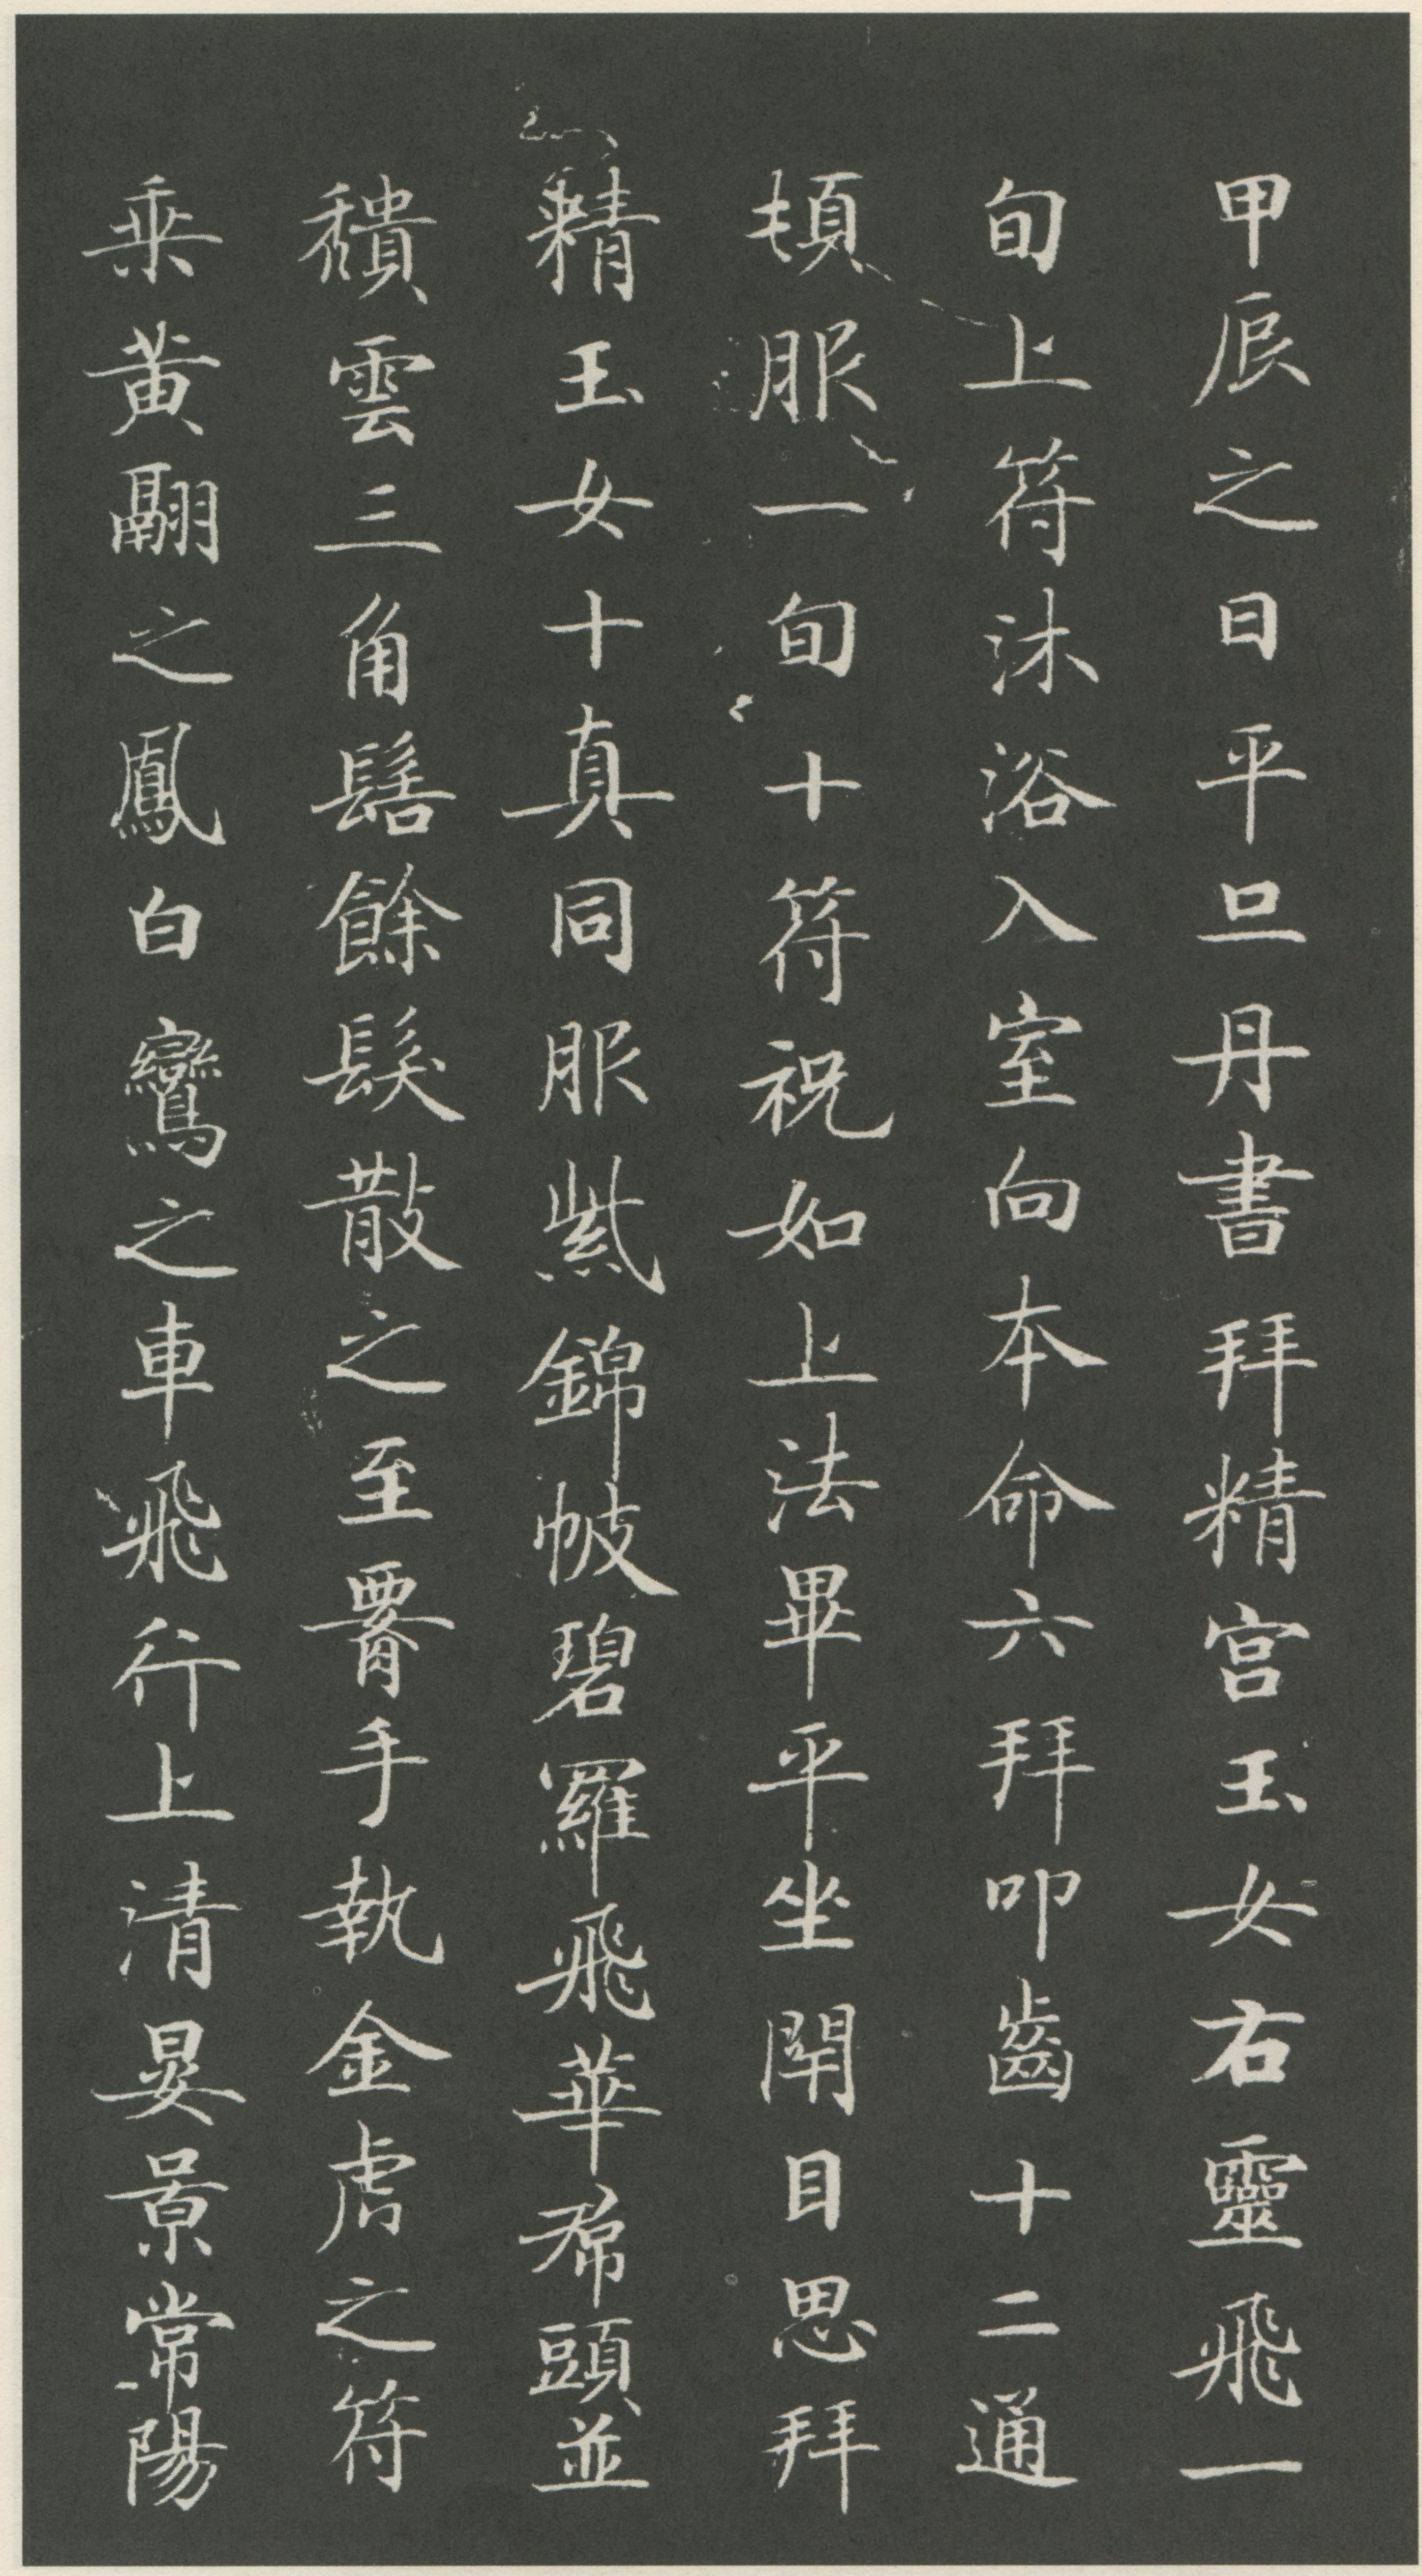 甲辰之日平旦丹書拜精宮玉女右靈飛一
旬上符沐浴入室向本命六拜叩齒十二通
頓服一旬十符祝如上法畢平坐閇目思拜
精玉女十真同服紫錦帔碧羅飛華帬頭並
穨雲三角髻餘髮散之至署手執金虎之符
乘黃翮之鳳白鸞之車飛行上清晏景常陽